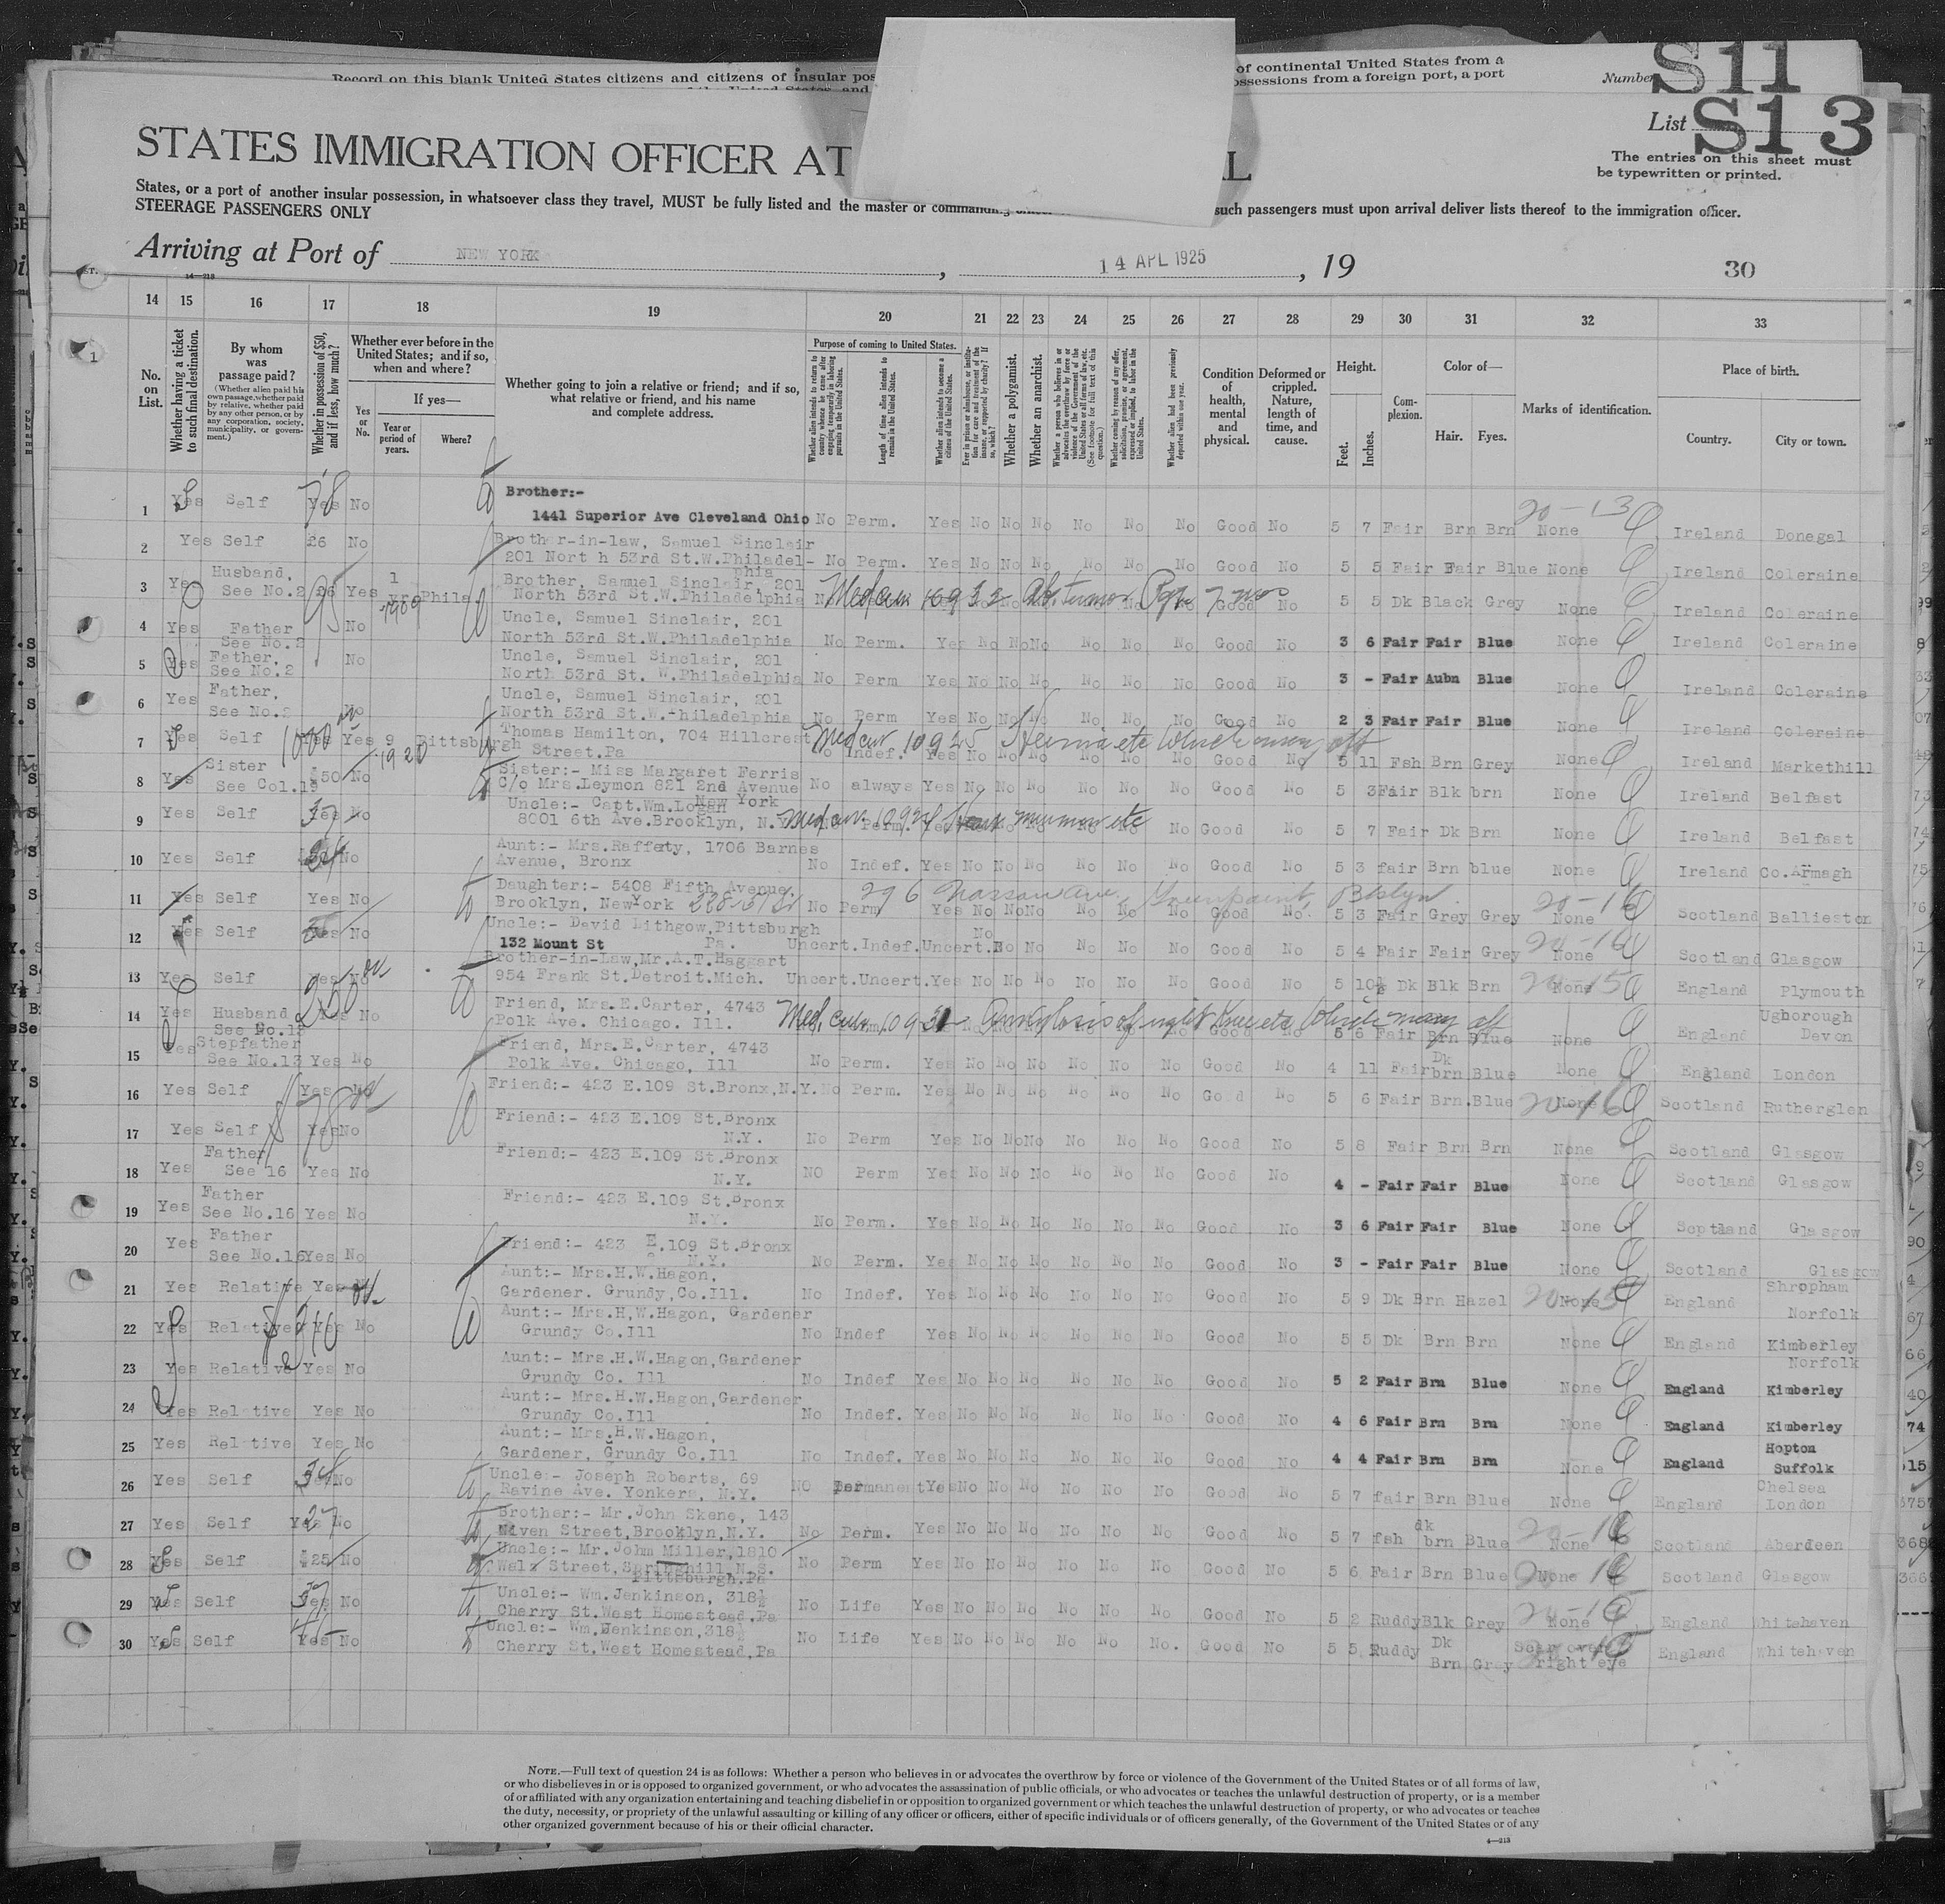 Record on this blank United States citizens and citizens of insular pos
of continental United States from a
ossessions from a foreign port, a port
Number S11
List S13
STATES IMMIGRATION OFFICER AT
L
The entries on this sheet must
be typewritten or printed.
States, or a port of another insular possession, in whatsoever class they travel, MUST be fully listed and the master or commanding
such passengers must upon arrival deliver lists thereof to the immigration officer.
STEERAGE PASSENGERS ONLY
Arriving at Port of NEW YORK, 14 APL 1925, 19
30
14 15 16 17 18 19 20 21 22 23 24 25 26 27 28 29 30 31 32 33
No. on List.
Whether having a ticket to such final destination.
By whom was passage paid?
(Whether alien paid his own passage, whether paid by relative, whether paid by any other person, or by any corporation, society, municipality, or government.)
Whether in possession of $50, and if less, how much?
Whether ever before in the United States; and if so, when and where?
Yes or No.
If yes—
Year or period of years.
Where?
Whether going to join a relative or friend; and if so, what relative or friend, and his name and complete address.
Purpose of coming to United States.
Whether alien intends to return to country whence he came after engaging temporarily in laboring pursuits in the United States.
Length of time alien intends to remain in the United States.
Whether alien intends to become a citizen of the United States.
Whether a polygamist.
Whether an anarchist.
Condition of health, mental and physical.
Deformed or crippled. Nature, length of time, and cause.
Height.
Feet.
Inches.
Complexion.
Color of—
Hair.
Eyes.
Marks of identification.
Place of birth.
Country.
City or town.
1 Yes Self Yes No Brother:- 1441 Superior Ave Cleveland Ohio No Perm. Yes No No No No No No Good No 5 7 Fair Brn Brn None Ireland Donegal
2 Yes Self 26 No Brother-in-law, Samuel Sinclair 201 Nort h 53rd St.W.Philadelphia No Perm. Yes No No No No No No Good No 5 5 Fair Fair Blue None Ireland Coleraine
3 Yes Husband, See No.2 Yes 1 yr 1909 Phila Brother, Samuel Sinclair, 201 North 53rd St.W.Philadelphia Good No 5 5 Dk Black Grey None Ireland Coleraine
4 Yes Father See No.2 No Uncle, Samuel Sinclair, 201 North 53rd St.W.Philadelphia No Perm. Yes No No No No No No Good No 3 6 Fair Fair Blue None Ireland Coleraine
5 Yes Father, See No.2 No Uncle, Samuel Sinclair, 201 North 53rd St. W.Philadelphia No Perm Yes No No No No No No Good No 3 - Fair Aubn Blue None Ireland Coleraine
6 Yes Father, See No.2 No Uncle, Samuel Sinclair, 201 North 53rd St.W.Philadelphia No Perm Yes No No No No No No Good No 2 3 Fair Fair Blue None Ireland Coleraine
7 Yes Self Yes Yes 9 1920 Pittsburgh Thomas Hamilton, 704 Hillcrest Street.Pa No Indef. Yes No No No No No No Good No 5 11 Fsh Brn Grey None Ireland Markethill
8 Yes Sister See Col.19 $50 No Sister:- Miss Margaret Ferris C/o Mrs.Leymon 821 2nd Avenue New York No always Yes No No No No No No Good No 5 3 Fair Blk brn None Ireland Belfast
9 Yes Self Yes No Uncle:- Capt.Wm.Logan 8001 6th Ave.Brooklyn, N.Y. Perm. No Good No 5 7 Fair Dk Brn None Ireland Belfast
10 Yes Self No Aunt:- Mrs.Raffety, 1706 Barnes Avenue, Bronx No Indef. Yes No No No No No No Good No 5 3 fair Brn blue None Ireland Co.Armagh
11 Yes Self Yes No Daughter:- 5408 Fifth Avenue, Brooklyn, NewYork 296 Nassau Ave. Greenpoint, Bklyn No Perm Yes No No No No No No Good No. 5 3 Fair Grey Grey None 20-16 Scotland Ballieston
12 Yes Self Yes No Uncle:- David Lithgow,Pittsburgh 132 Mount St Pa. Uncert.Indef.Uncert.No No No No No No Good No 5 4 Fair Fair Grey None Scotland Glasgow
13 Yes Self Yes No Brother-in-Law,Mr.A.T.Haggart 954 Frank St.Detroit.Mich. Uncert.Uncert.Yes No No No No No No Good No 5 10½ Dk Blk Brn None England Plymouth
14 Yes Husband See No.13 Yes No Friend, Mrs.E.Carter, 4743 Polk Ave. Chicago. Ill. Good No 5 5 Fair Brn Blue None England Ugborough Devon
15 Yes Stepfather See No.13 Yes No Friend, Mrs.E.Carter, 4743 Polk Ave. Chicago, Ill No Perm. Yes No No No No No No Good No 4 11 Fair Dk brn Blue None England London
16 Yes Self Yes No Friend:- 423 E.109 St.Bronx,N.Y. No Perm. Yes No No No No No No Good No 5 6 Fair Brn.Blue None Scotland Rutherglen
17 Yes Self Yes No Friend:- 423 E.109 St.Bronx N.Y. No Perm Yes No No No No No No Good No 5 8 Fair Brn Brn None Scotland Glasgow
18 Yes Father See 16 Yes No Friend:- 423 E.109 St.Bronx N.Y. NO Perm Yes No No No No No No Good No 4 - Fair Fair Blue None Scotland Glasgow
19 Yes Father See No.16 Yes No Friend:- 423 E.109 St.Bronx N.Y. No Perm. Yes No No No No No No Good No 3 6 Fair Fair Blue None Scotland Glasgow
20 Yes Father See No.16 Yes No Friend:- 423 E.109 St.Bronx N.Y. No Perm. Yes No No No No No No Good No 3 - Fair Fair Blue None Scotland Glasgow
21 Yes Relative Yes Aunt:- Mrs.H.W.Hagon, Gardener. Grundy,Co.Ill. No Indef. Yes No No No No No No Good No 5 9 Dk Brn Hazel None England Shropham Norfolk
22 Yes Relative Yes No Aunt:- Mrs.H,W.Hagon, Gardener Grundy Co.Ill No Indef Yes No No No No No No Good No 5 5 Dk Brn Brn None England Kimberley Norfolk
23 Yes Relative Yes No Aunt:- Mrs.H.W.Hagon,Gardener Grundy Co. Ill No Indef Yes No No No No No No Good No 5 2 Fair Brn Blue None England Kimberley
24 Yes Relative Yes No Aunt:- Mrs.H.W.Hagon,Gardener Grundy Co.Ill No Indef. Yes No No No No No No Good No 4 6 Fair Brn Brn None England Kimberley
25 Yes Relative Yes No Aunt:- Mrs.H.W.Hagon, Gardener, Grundy Co.Ill No Indef. Yes No No No No No No Good No 4 4 Fair Brn Brn None England Hopton Suffolk
26 Yes Self No Uncle:- Joseph Roberts, 69 Ravine Ave. Yonkers, N.Y. NO Permanent Yes No No No No No No Good No 5 7 fair Brn Blue None England Chelsea London
27 Yes Self Yes No Brother:- Mr.John Skene, 143 Niven Street,Brooklyn,N.Y. No Perm. Yes No No No No No No Good No 5 7 fsh dk brn Blue None Scotland Aberdeen
28 Yes Self $25 No Uncle:- Mr.John Miller,1810 Street, Springhill,N.S. Pittsburgh.Pa No Perm Yes No No No No No No Good No 5 6 Fair Brn Blue None Scotland Glasgow
29 Yes Self Yes No Uncle:- Wm.Jenkinson, 318½ Cherry St.West Homestead.Pa No Life Yes No No No No No No Good No 5 2 Ruddy Blk Grey None England Whitehaven
30 Yes Self Yes No Uncle:- Wm.Jenkinson,318½ Cherry St.West Homestead,Pa No Life Yes No No No No No No. Good No 5 5 Ruddy Dk Brn Grey Scar over right eye England Whitehaven
NOTE.—Full text of question 24 is as follows: Whether a person who believes in or advocates the overthrow by force or violence of the Government of the United States or of all forms of law,
or who disbelieves in or is opposed to organized government, or who advocates the assassination of public officials, or who advocates or teaches the unlawful destruction of property, or is a member
of or affiliated with any organization entertaining and teaching disbelief in or opposition to organized government or which teaches the unlawful destruction of property, or who advocates or teaches
the duty, necessity, or propriety of the unlawful assaulting or killing of any officer or officers, either of specific individuals or of officers generally, of the Government of the United States or of any
other organized government because of his or their official character.